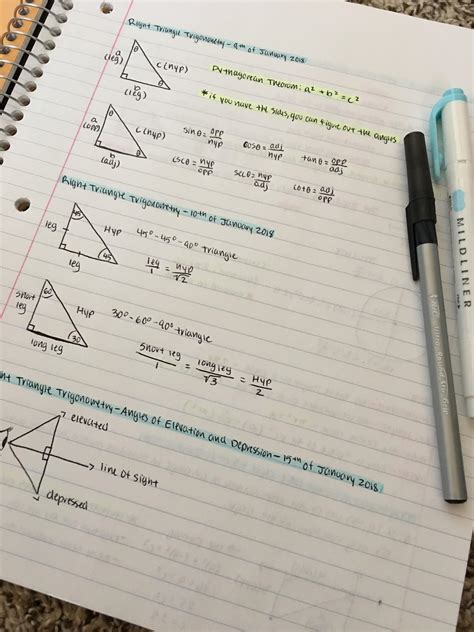 Right Triangle Trigonometry - 9th of January 2018
a
(leg)
θ
c (hyp)
b
(leg)
θ
Pythagorean Theorem: a² + b² = c²
*if you have the sides, you can figure out the angles
a
(opp)
c (hyp)
b
(adj)
θ
sin θ = opp/hyp cos θ = adj/hyp tan θ = opp/adj
csc θ = hyp/opp sec θ = hyp/adj cot θ = adj/opp
Right Triangle Trigonometry - 10th of January 2018
45
leg
Hyp
45
leg
45° - 45° - 90° triangle
leg/1 = hyp/√2
60
short leg
Hyp
30
long leg
30° - 60° - 90° triangle
short leg/1 = long leg/√3 = Hyp/2
nt Triangle Trigonometry - Angles of Elevation and Depression - 15th of January 2018
elevated
line of sight
depressed
MILDLINER